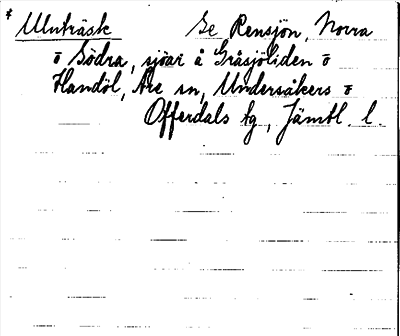 * Ulnträsk Se Rensjön, Norra
o Södra, sjöar å Gråsjöliden o
Handöl, Åre sn, Undersåkers o
Offerdals tg, Jämtl. l.